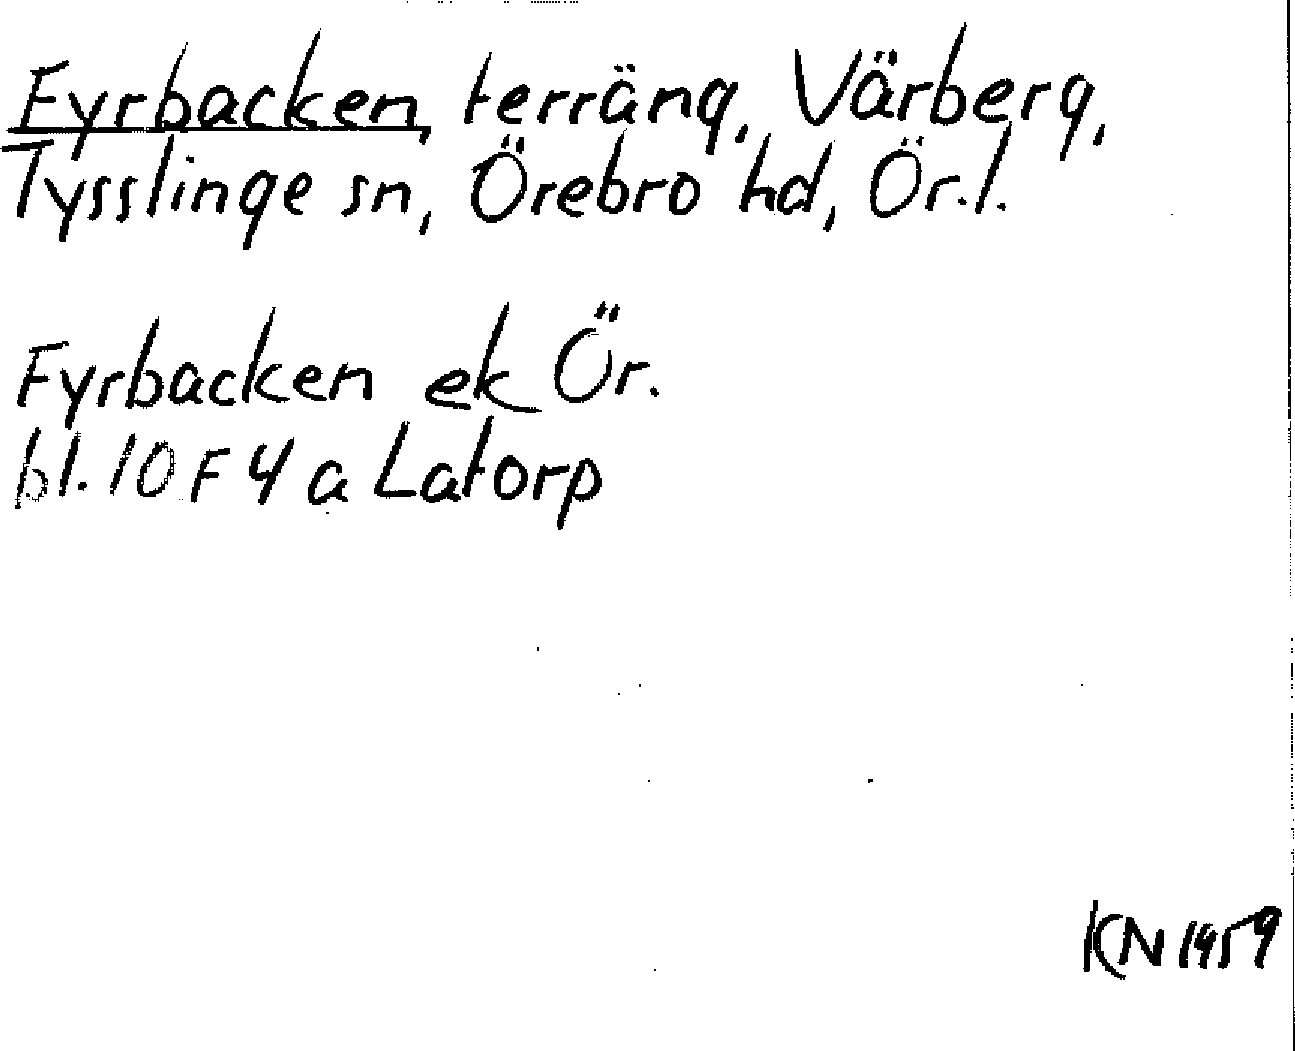 Fyrbacken, terräng, Värberg,
Tysslinge sn, Örebro hd, Ör.l.
Fyrbacken ek Ör.
bl. 10 F 4 a Latorp
KN 1959